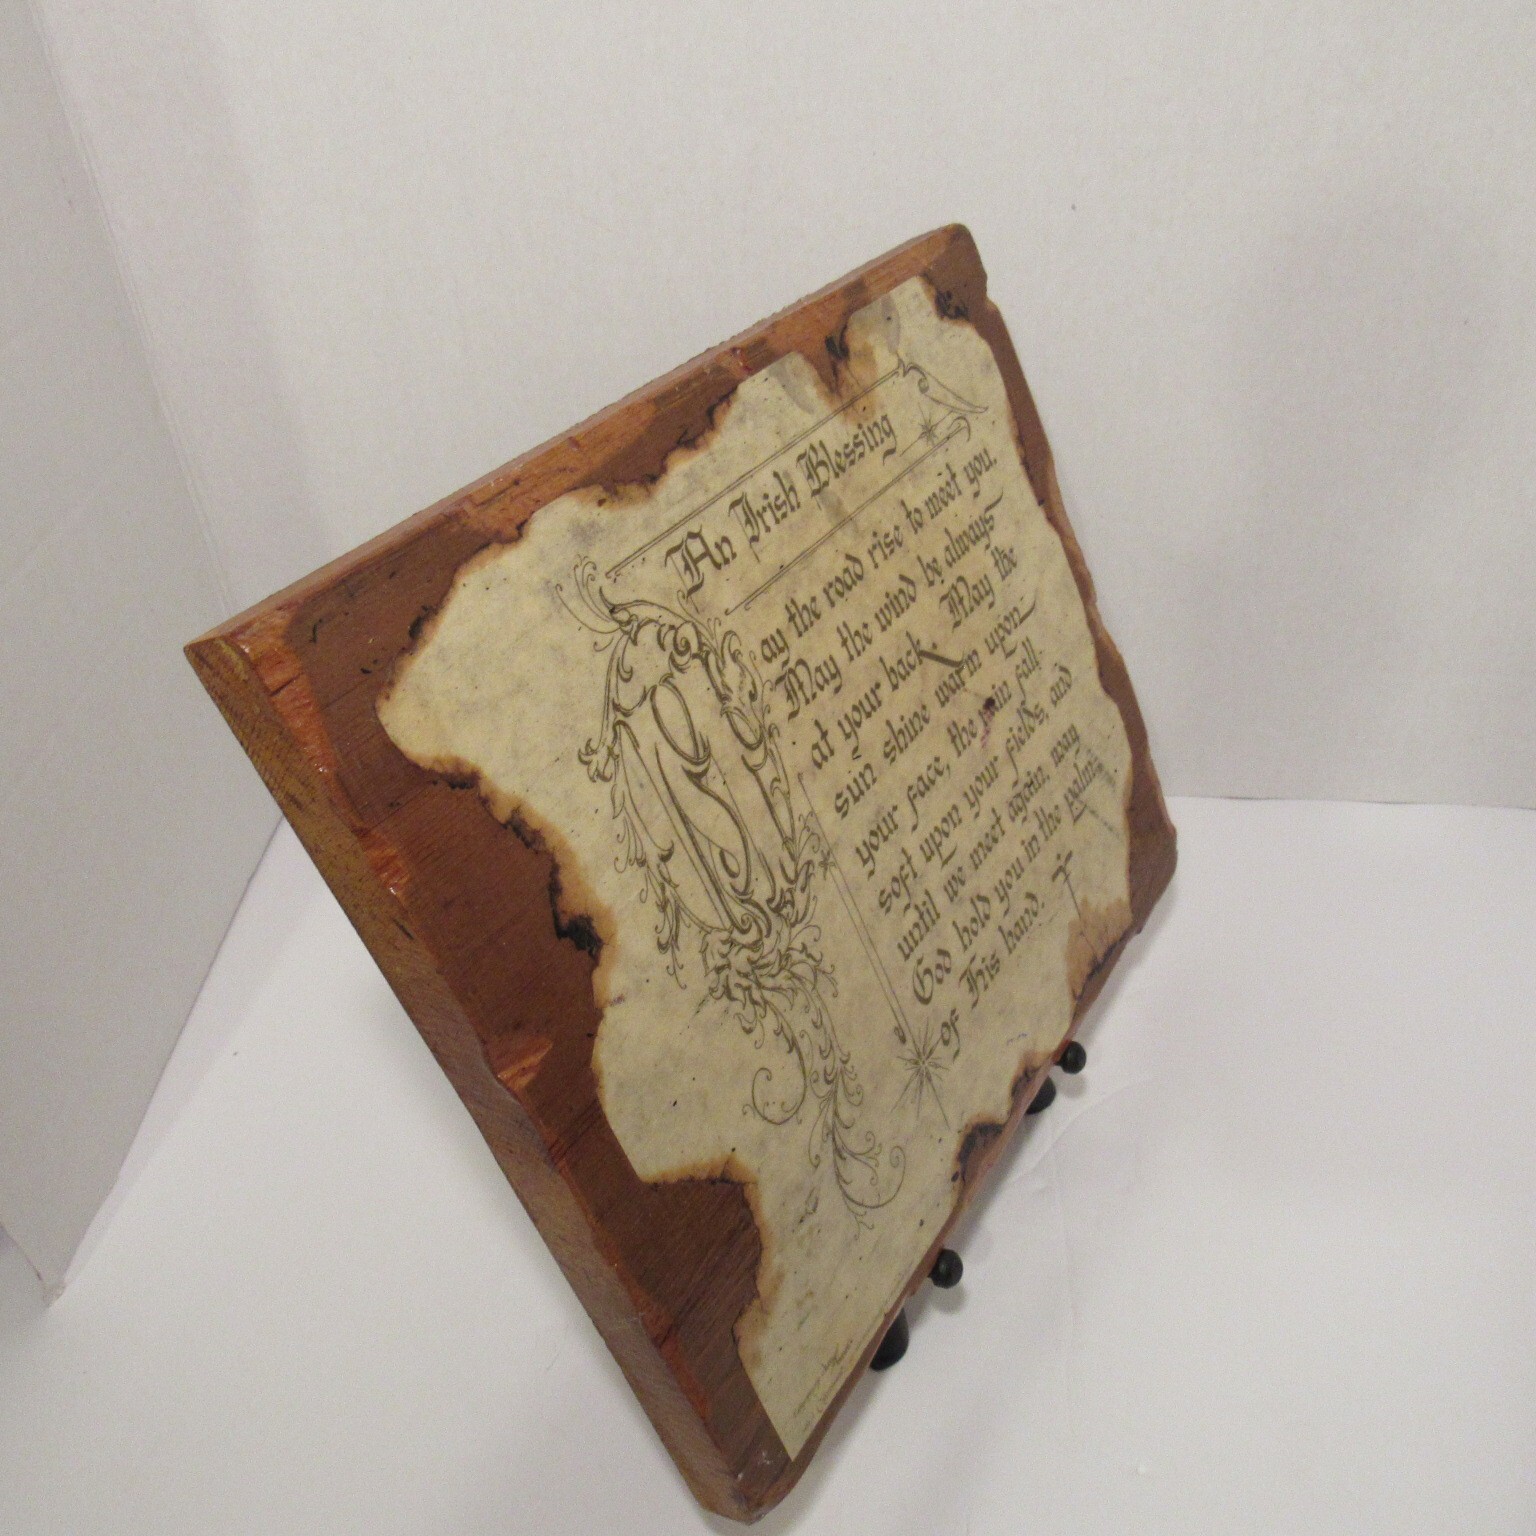 An Irish Blessing
May the road rise to meet you.
May the wind be always
at your back. May the
sun shine warm upon
your face, the rain fall
soft upon your fields, and
until we meet again, may
God hold you in the palm
of His hand.